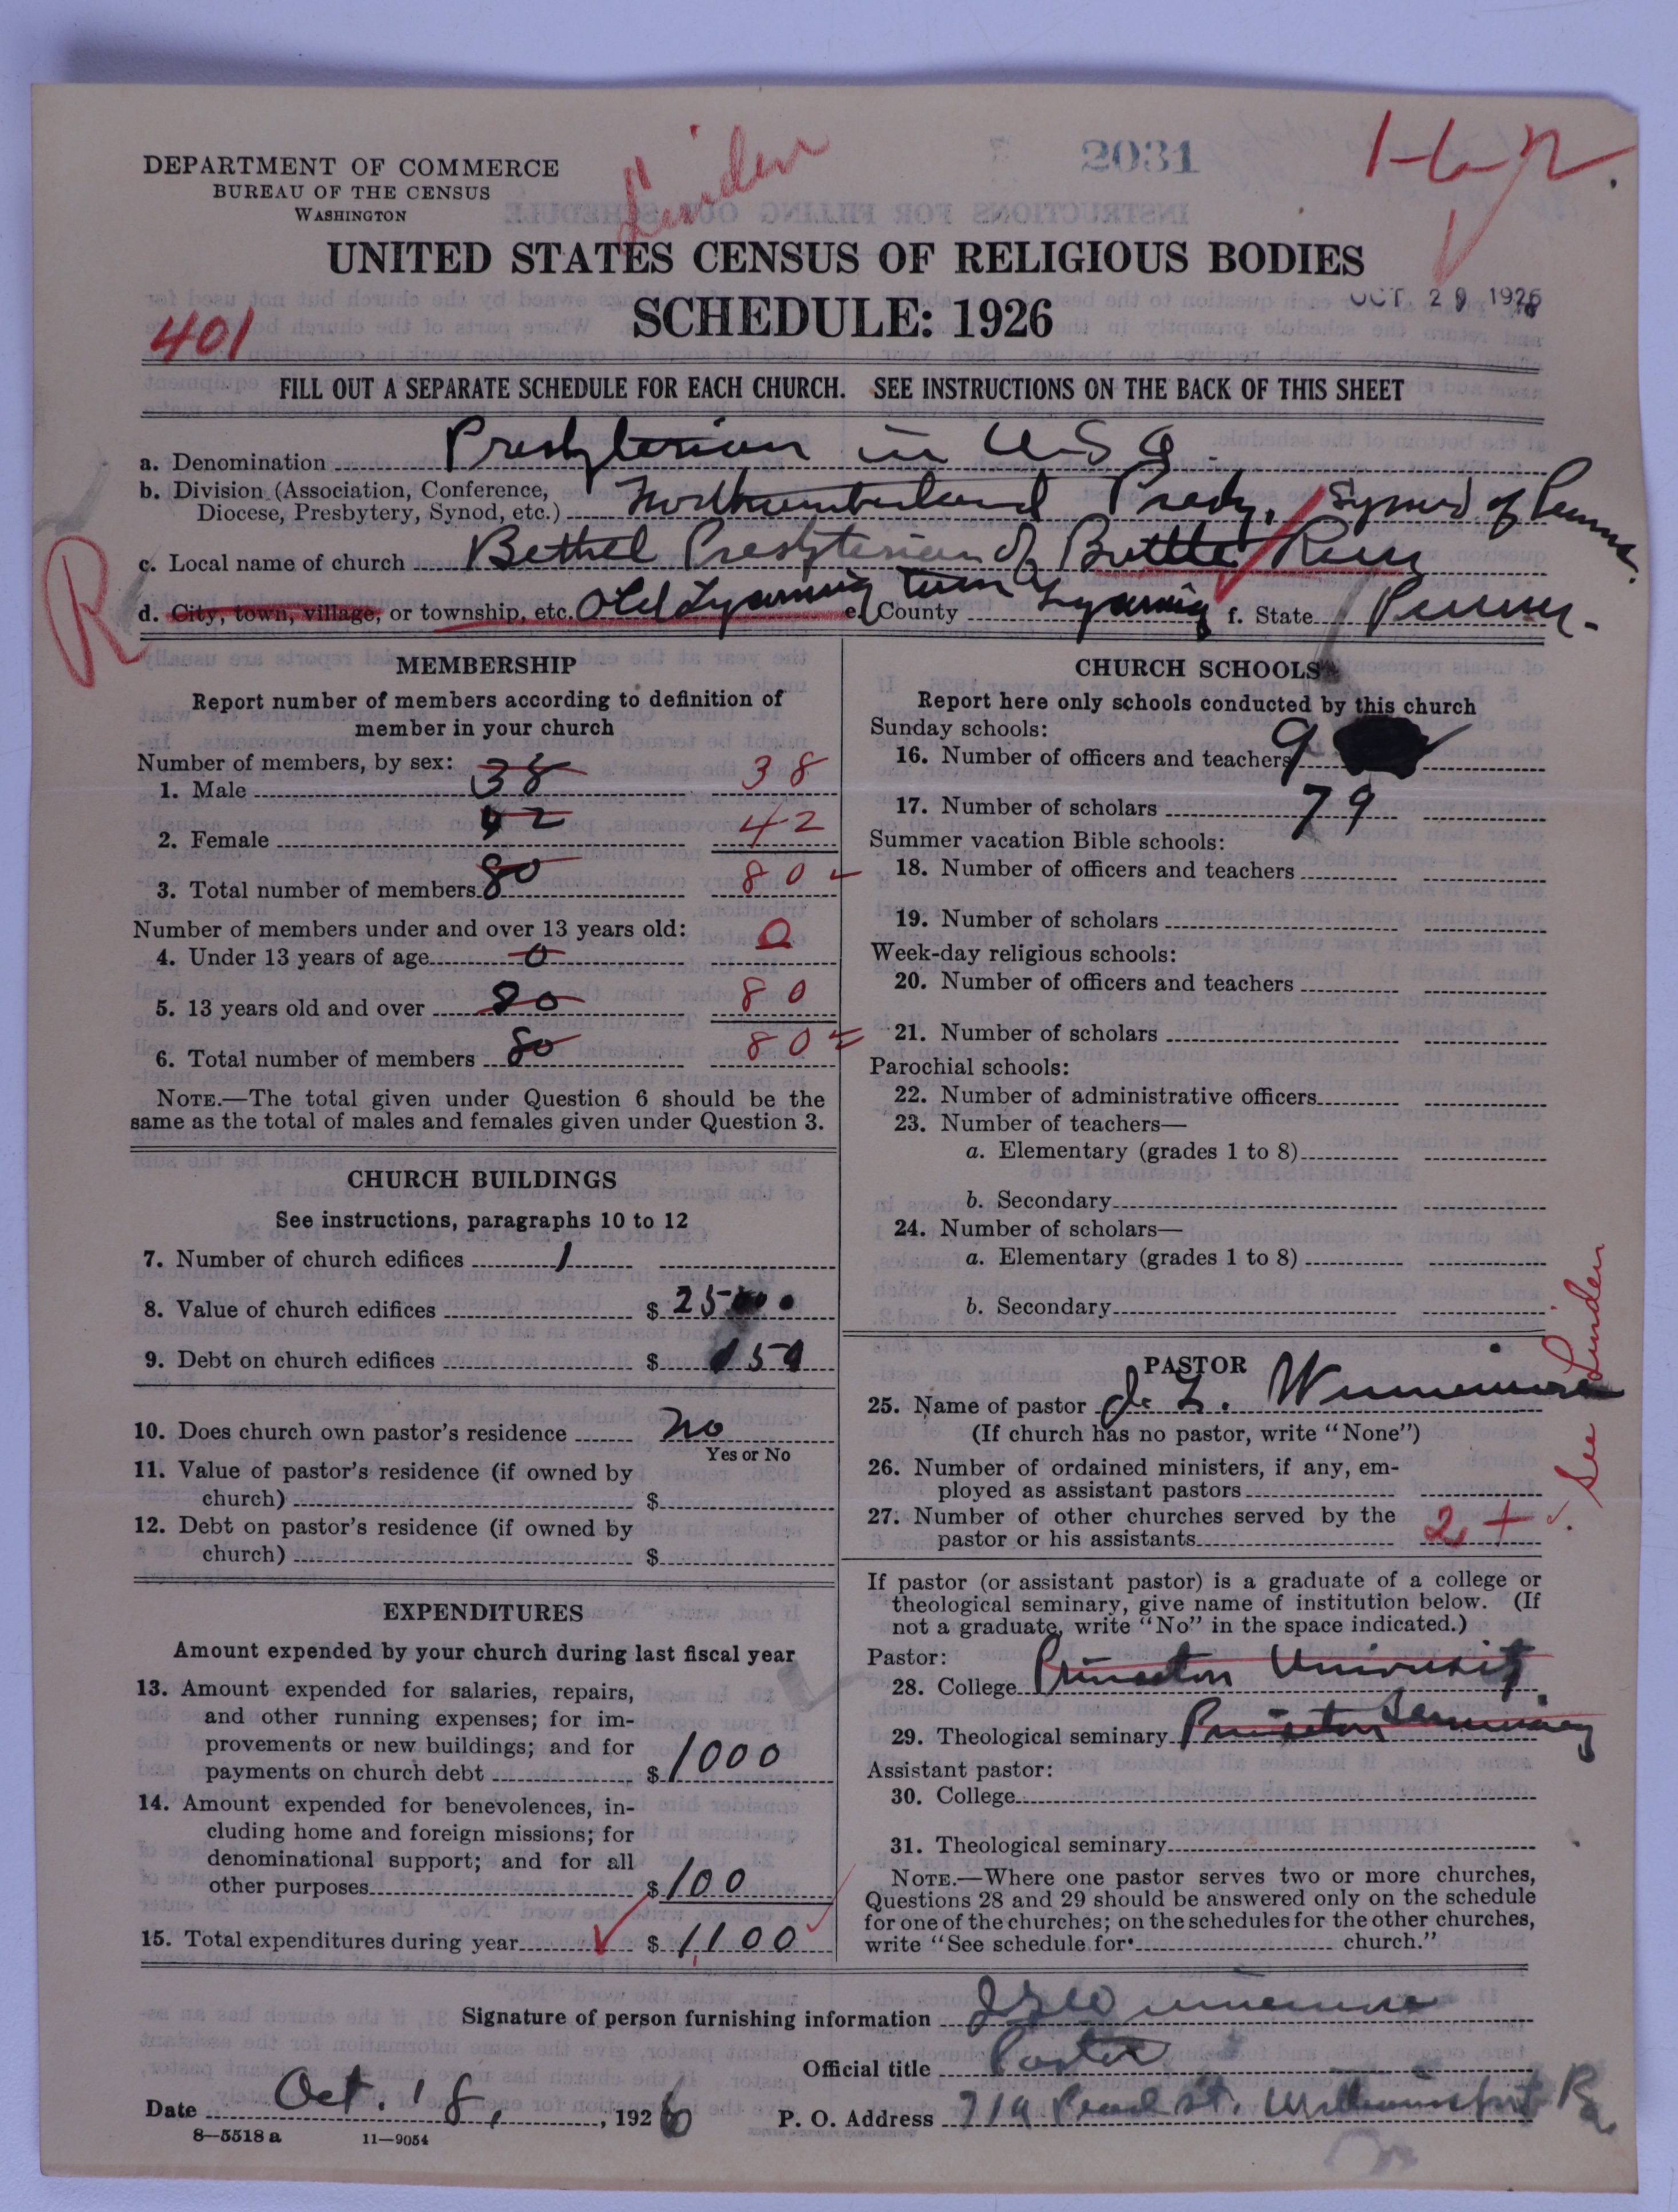 Linden
2031
H-R.
DEPARTMENT OF COMMERCE
BUREAU OF THE CENSUS
WASHINGTON
UNITED STATES CENSUS OF RELIGIOUS BODIES
SCHEDULE: 1926
OCT 29 1926
401
FILL OUT A SEPARATE SCHEDULE FOR EACH CHURCH. SEE INSTRUCTIONS ON THE BACK OF THIS SHEET
a. Denomination Presbyterian in U.S.A.
b. Division (Association, Conference, Diocese, Presbytery, Synod, etc.) Northumberland Presby, Synod of Penna.
c. Local name of church Bethel Presbyterian of Bottle Run
d. City, town, village, or township, etc. Old Lycoming twn e. County Lycoming f. State Penna.
R
MEMBERSHIP
Report number of members according to definition of
member in your church
Number of members, by sex:
1. Male 38 38
2. Female 42 42
3. Total number of members 80 80
Number of members under and over 13 years old:
4. Under 13 years of age 0 0
5. 13 years old and over 80 80
6. Total number of members 80 80
NOTE.—The total given under Question 6 should be the
same as the total of males and females given under Question 3.
CHURCH BUILDINGS
See instructions, paragraphs 10 to 12
7. Number of church edifices 1
8. Value of church edifices $
9. Debt on church edifices $
10. Does church own pastor's residence No
Yes or No
11. Value of pastor's residence (if owned by
church) $
12. Debt on pastor's residence (if owned by
church) $
EXPENDITURES
Amount expended by your church during last fiscal year
13. Amount expended for salaries, repairs,
and other running expenses; for im-
provements or new buildings; and for
payments on church debt $ 1000
14. Amount expended for benevolences, in-
cluding home and foreign missions; for
denominational support; and for all
other purposes $ 100
15. Total expenditures during year $ 1,100
CHURCH SCHOOLS
Report here only schools conducted by this church
Sunday schools:
16. Number of officers and teachers 9
17. Number of scholars 79
Summer vacation Bible schools:
18. Number of officers and teachers
19. Number of scholars
Week-day religious schools:
20. Number of officers and teachers
21. Number of scholars
Parochial schools:
22. Number of administrative officers
23. Number of teachers—
a. Elementary (grades 1 to 8)
b. Secondary
24. Number of scholars—
a. Elementary (grades 1 to 8)
b. Secondary
PASTOR
25. Name of pastor J. L. Winnemore
(If church has no pastor, write "None")
26. Number of ordained ministers, if any, em-
ployed as assistant pastors
27. Number of other churches served by the
pastor or his assistants 2 +
See Linden
If pastor (or assistant pastor) is a graduate of a college or
theological seminary, give name of institution below. (If
not a graduate, write "No" in the space indicated.)
Pastor:
28. College Princeton University
29. Theological seminary Princeton Seminary
Assistant pastor:
30. College
31. Theological seminary
NOTE.—Where one pastor serves two or more churches,
Questions 28 and 29 should be answered only on the schedule
for one of the churches; on the schedules for the other churches,
write "See schedule for church."
Signature of person furnishing information J L Winnemore
Official title Pastor
Date Oct. 18, 1926 P. O. Address 719 Pearl St. Williamsport Pa
8—5518 a 11—9054